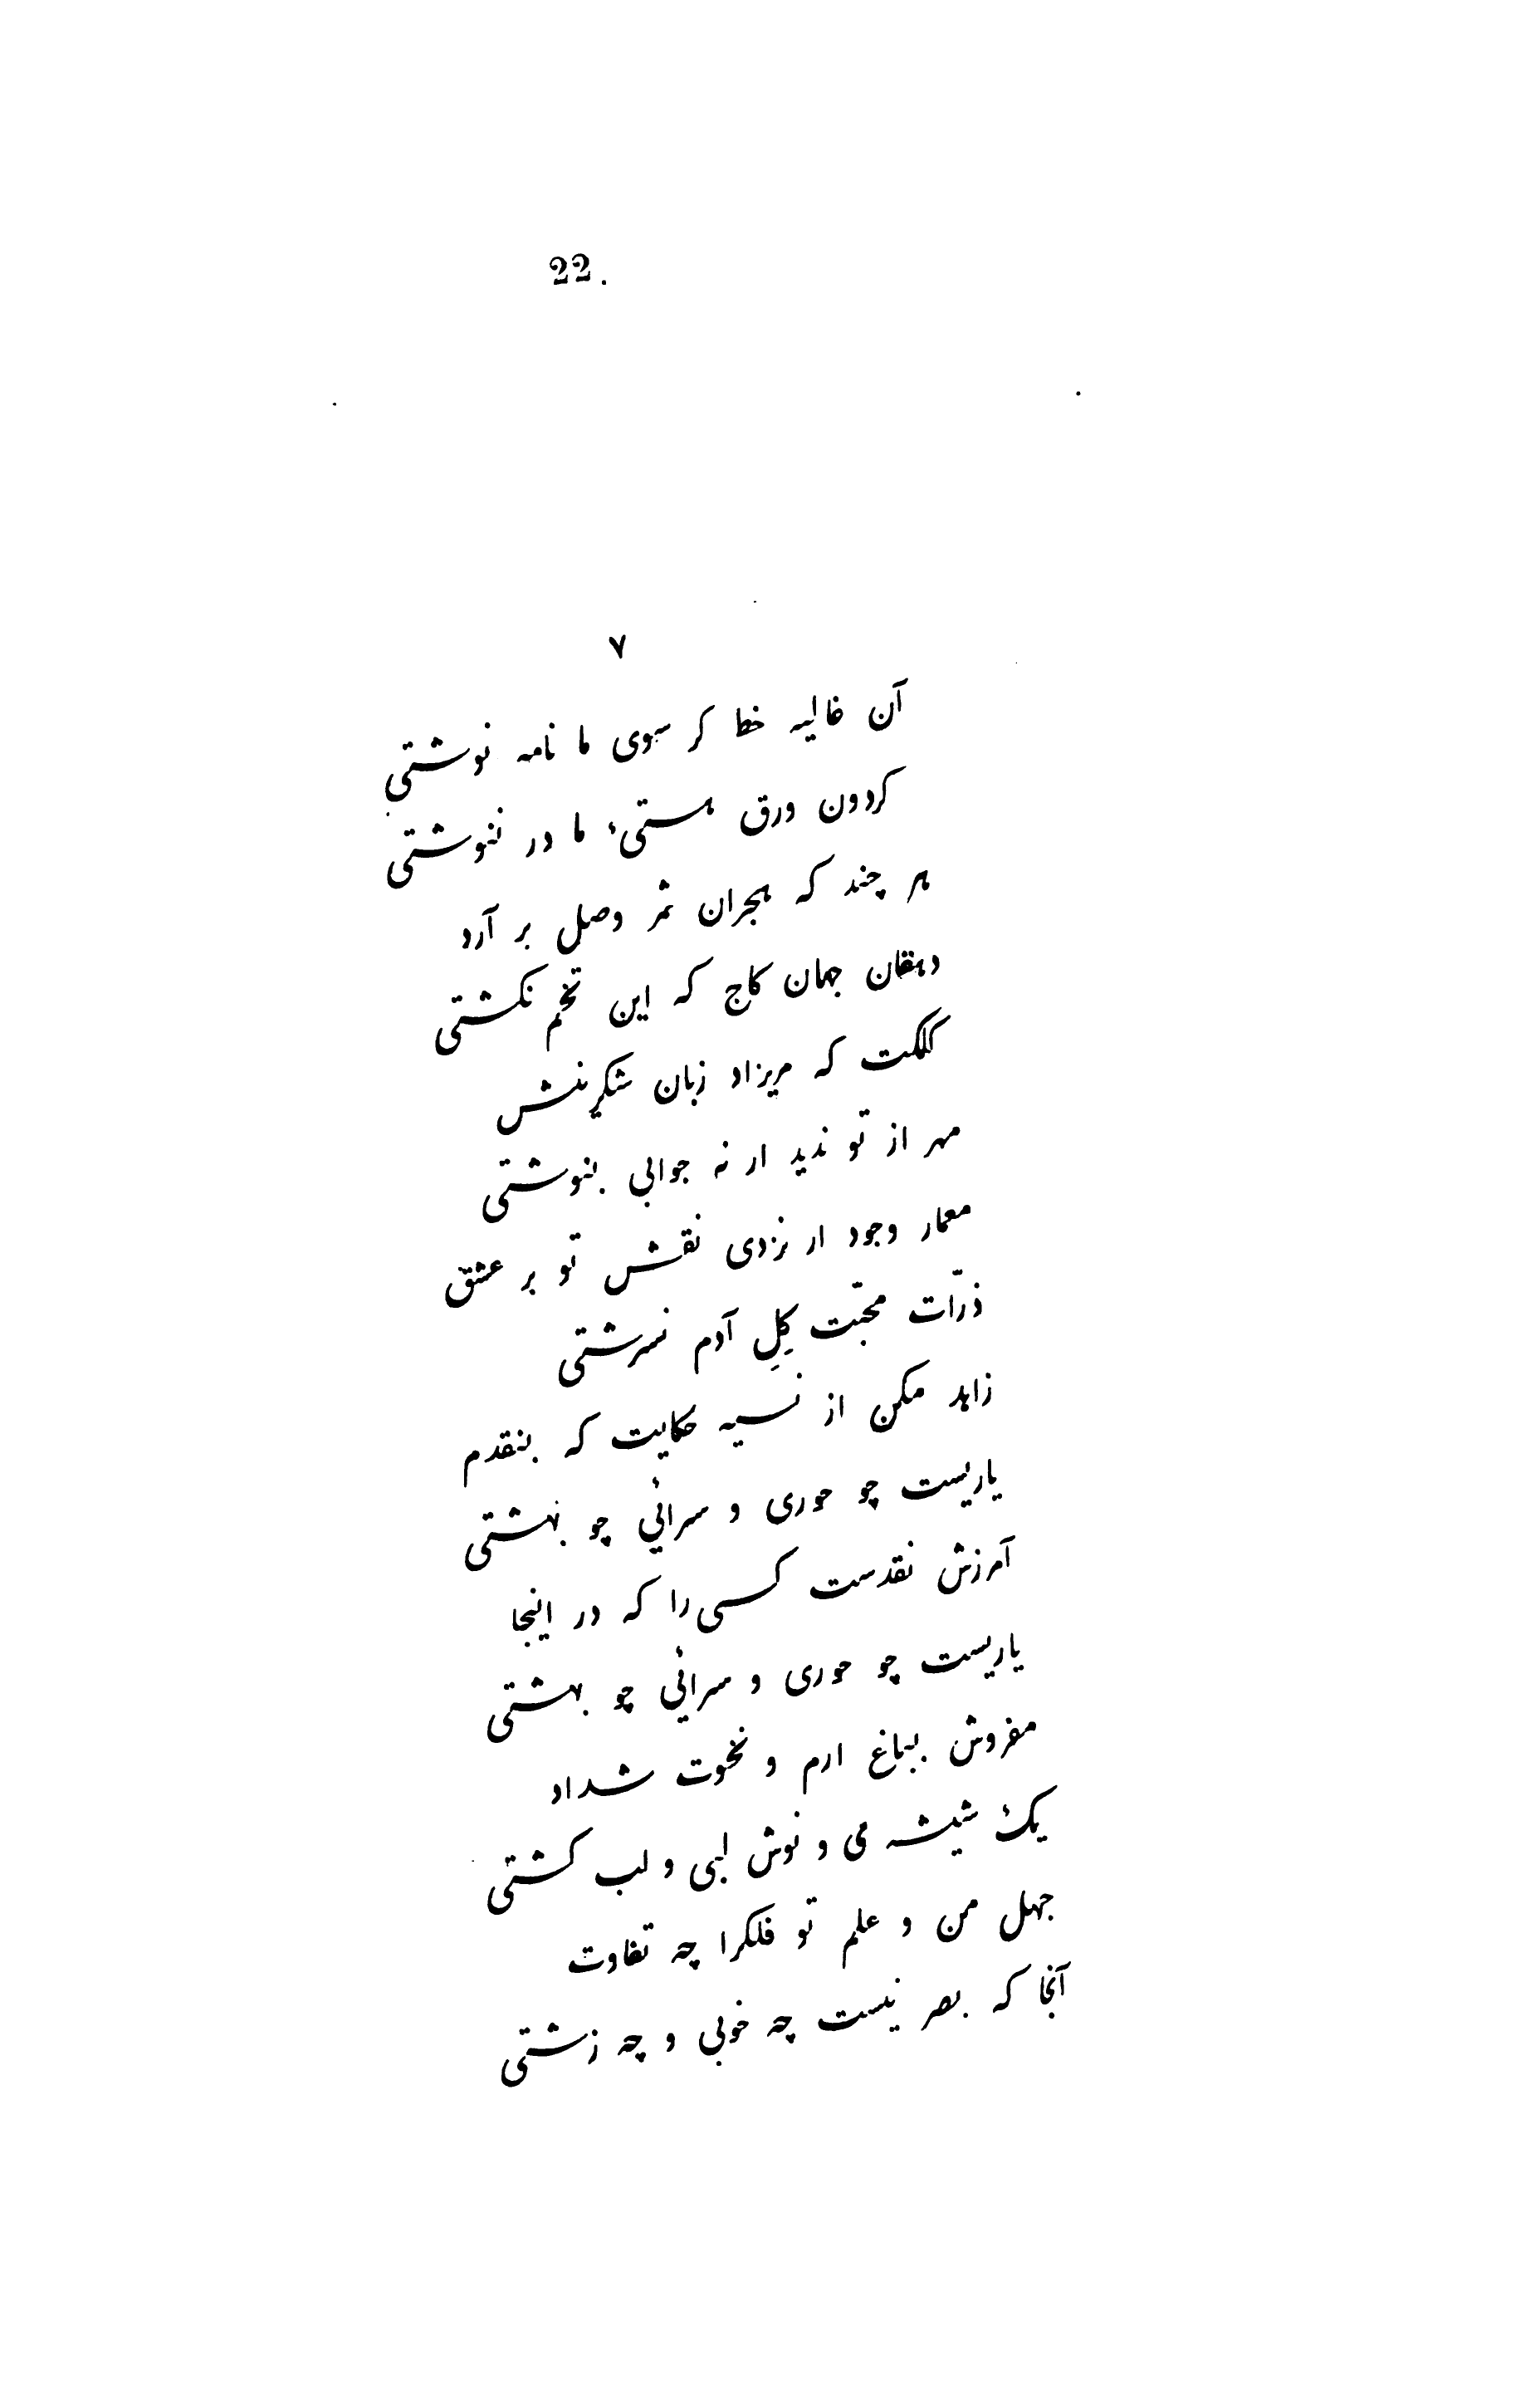 22.
٧
آن غالیه خط کر سوی ما نامه نوشتی
کردون ورق هستیٔ ما در ننوشتی
هر چند که هجران ثمر وصل بر آرد
دهقان جهان کاج که این تخم نکشتی
کلکت که مریزاد زبان شکرینش
مهر از تو ندید ار نه جوابی بنوشتی
معمار وجود ار نزدی نقش تو بر عشق
ذرّات محبّت کِلِ آدم نسرشتی
زاهد مکن از نسیه حکایت که بنقدم
یاریست چو حوری و سرائی چو بهشتی
آمرزش نقدست کسی را که در اینجا
یاریست چو حوری و سرائی چو بهشتی
مفروش بباغ ارم و نخوت شداد
یک شیشه می و نوش لبی و لب کشتی
جهل من و علم تو فلکرا چه تفاوت
آنجا که بصر نیست چه خوبی و چه زشتی